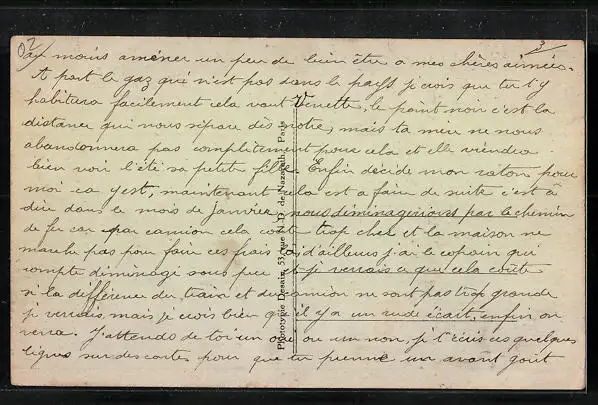 2
3
au moins amèner un peu de bien être a mes chères aimées.
A part le gaz qui n'est pas dans le pays je crois que tu t'y
habituera facilement cela vaut Venette, le point noir c'est la
distance qui nous sépare des notre, mais ta mère ne nous
abandonnera pas complètement pour cela et elle viendra
bien voir l'été sa petite fille. Enfin décide mon raton pour
moi ca yest, maintenant cela est a faire de suite c'est à
dire dans le mois de janvier, nous déménagerions par le chemin
de fer car par camion cela coute trop cher et la maison ne
marche pas pour faire ces frais là, d'ailleurs j'ai le copain qui
compte déménagé sous peu et je verrais ce que cela coute
si la différence du train et du camion ne sont pas trop grande
je verrais mais je crois bien qu'il y a un rude écart, enfin on
verra. J'attends de toi un oui ou un non, je t'écris ces quelques
lignes sur des cartes pour que tu prenne un avant goût
Phototypie Desaix, 53, rue N.-D. de Nazareth, Paris